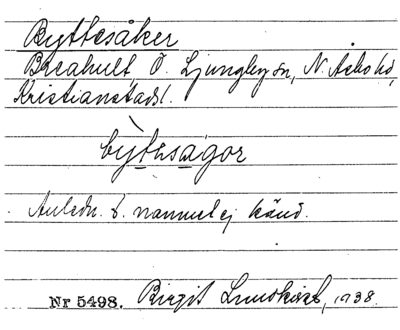 Byttesåker
Breahult, Ö. Ljungby sn, N. Åsbo hd,
Kristianstads l.
bỳtesagor
Anledn. t. namnet ej känd.
Nr 5498. Birgit Lundkvist, 1938.